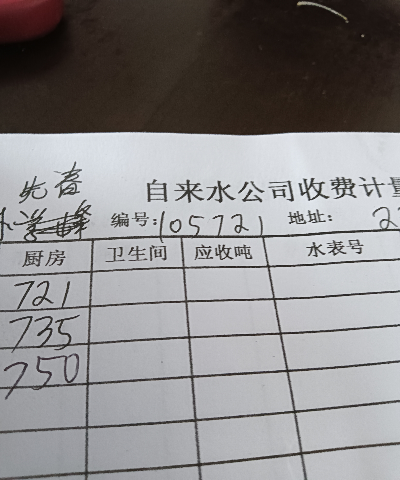 先春
自来水公司收费计量
编号: 105721 地址: 2
厨房 卫生间 应收吨 水表号
721
735
750